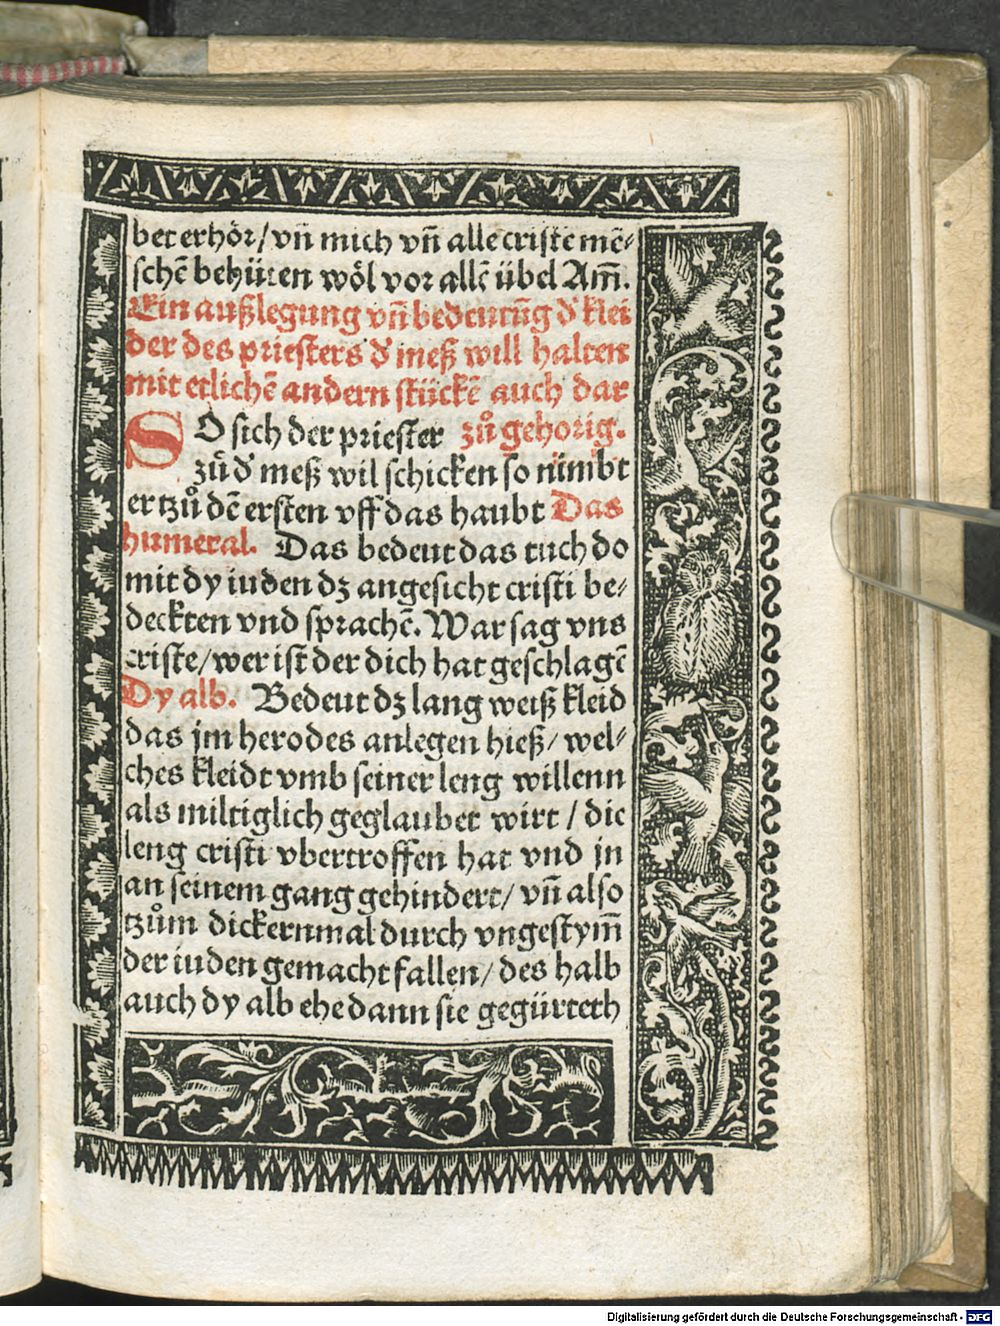 bet erhör/ vn̄ mich vn̄ alle cristē mē⸗
schē behüten wöl vor allē übel Am̄.
Ein außlegung vn̄ bedeutūg d' klei
der des priesters d' meß will halten
mit etlichē andern stückē auch dar
zůgehorig.
SO sich der priester
zů d' meß wil schicken so nimbt
er tzů dē ersten vff das haubt Das
humeral. Das bedeut das tuch do
mit dy iuden dz angesicht cristi be⸗
deckten vnd sprachē. War sag vns
criste/ wer ist der dich hat geschlagē
Dy alb. Bedeut dz lang weiß kleid
das jm herodes anlegen hieß/ wel⸗
ches kleidt vmb seiner leng willenn
als miltiglich geglaubet wirt / die
leng cristi vbertroffen hat vnd jn
an seinem gang gehindert/ vn̄ also
tzům dickernmal durch vngestym̄
der iuden gemacht fallen/ des halb
auch dy alb ehe dann sie gegürteth
Digitalisierung gefördert durch die Deutsche Forschungsgemeinschaft - DFG